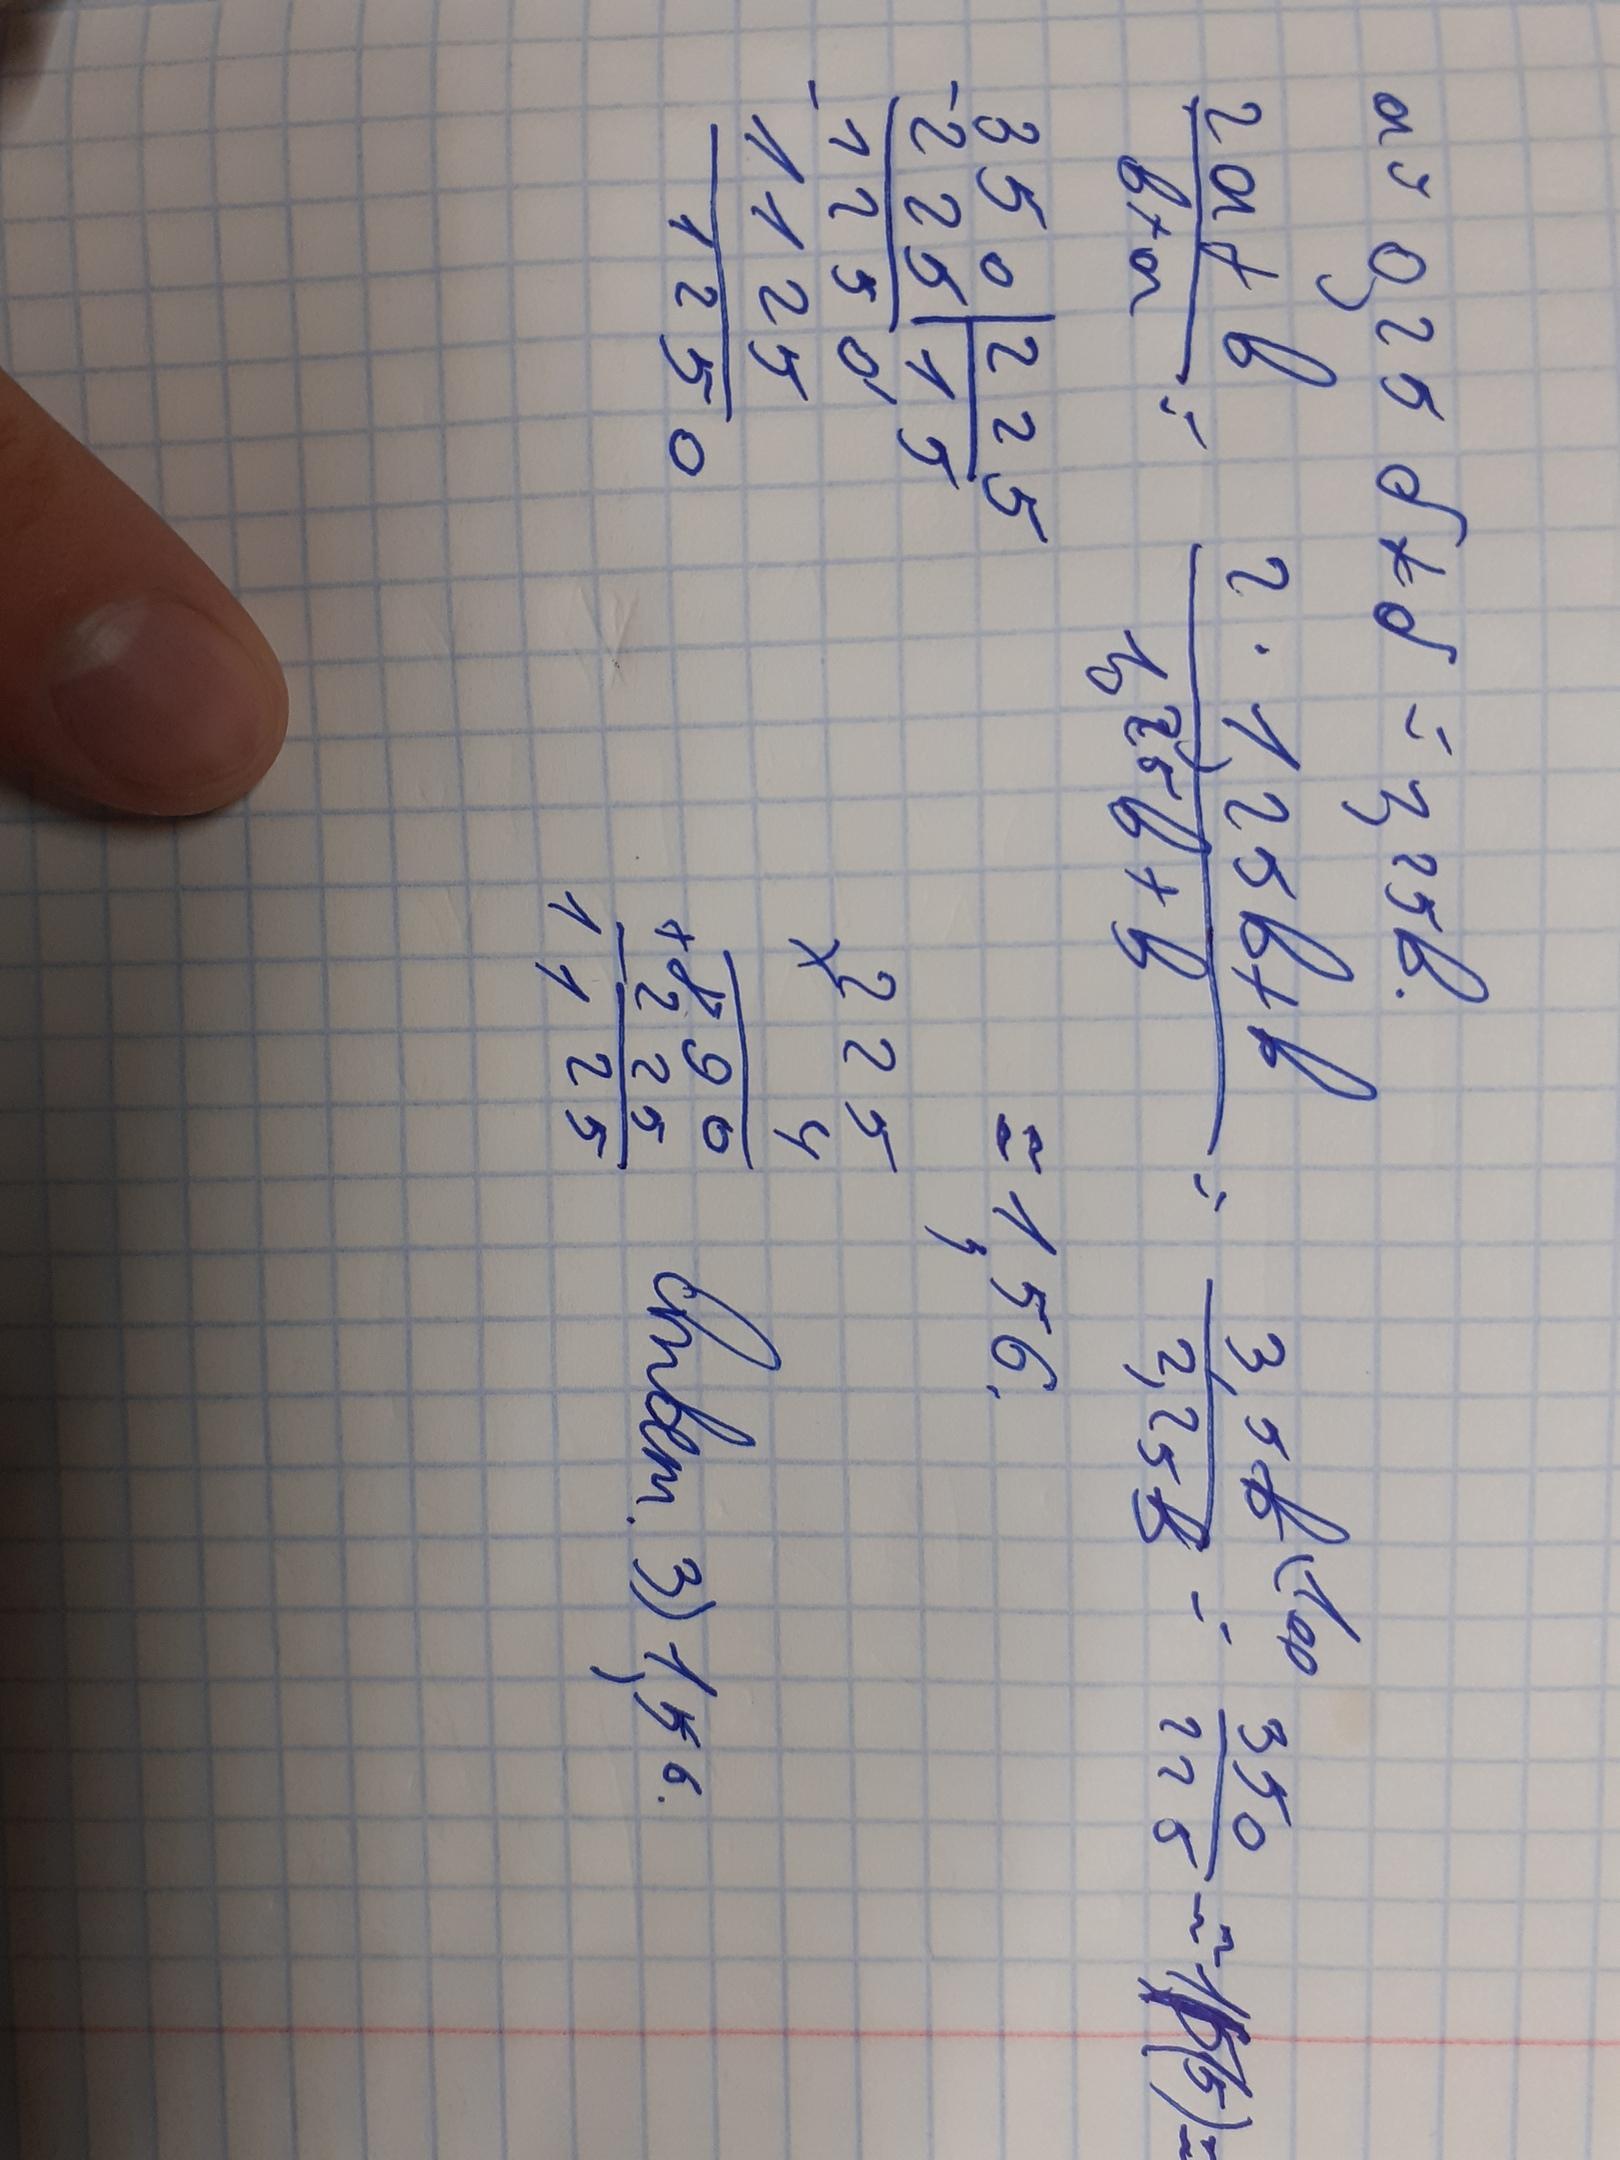 a = 0,25 b + b = 1,25 b.
2a + b / b + a = 2 · 1,25b + b / 1,25b + b = 3,5b (100 / 2,25b = 350 / 225 ≈ 1,5(5) ≈
≈ 1,56.
350 | 225
- 225 | 15
- 1250
1125
1250
× 225
4
900
+ 225
1125
Ответ. 3) 1,56.